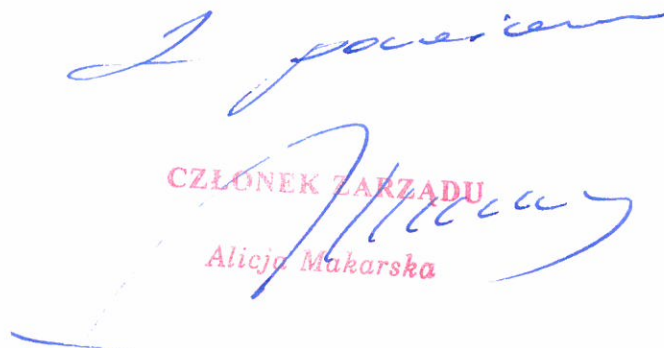 Z poważaniem
CZŁONEK ZARZĄDU
Alicja Makarska